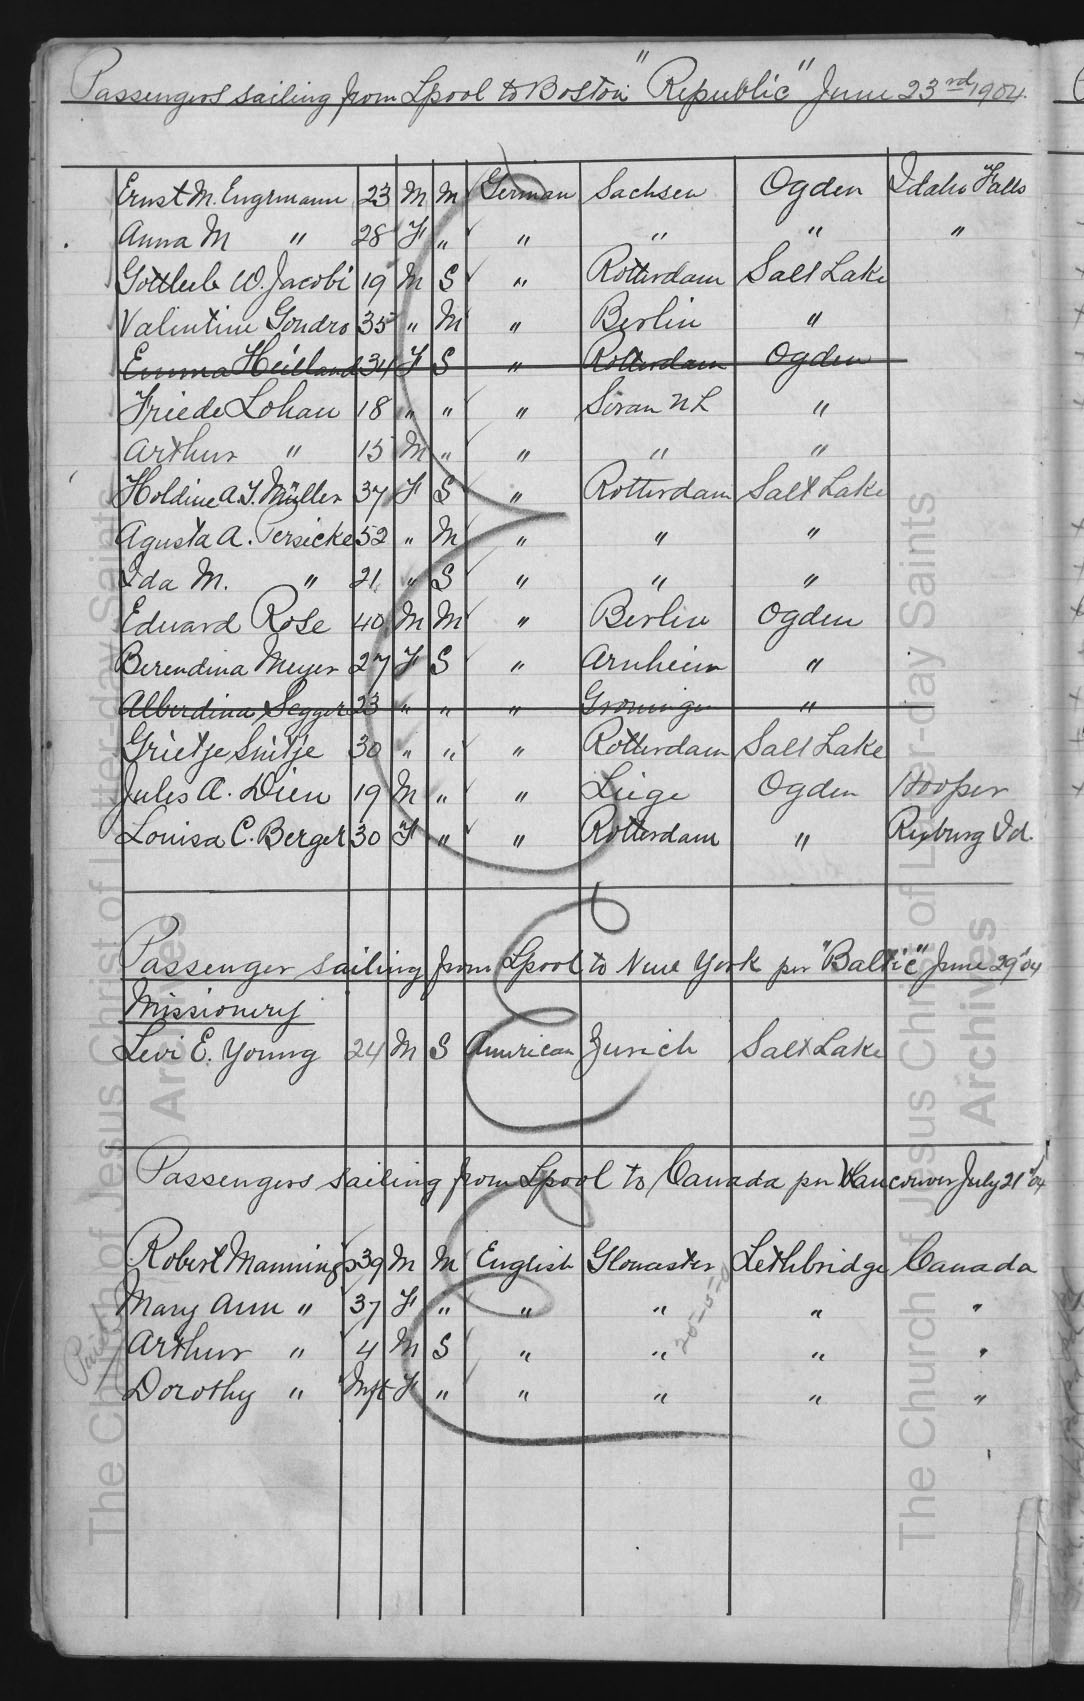 Passengers sailing from Lpool to Boston "Republic" June 23rd 1904.
Ernst M. Engrmann 23 M M German Sachsen Ogden Idaho Falls
Anna M " 28 F " " " " "
Gottleib W. Jacobi 19 M S " Rotterdam Salt Lake
Valintine Gondro 35 " M " Berlin "
Emma Heilland 34 F S " Rotterdam Ogden
Friede Lohau 18 " " " Soran N L "
Arthur " 15 M " " " "
Holdine A. I. Müller 37 F S " Rotterdam Salt Lake
Agusta A. Persicke 52 " M " " "
Ida M. " 21 " S " " "
Eduard Rose 40 M M " Berlin Ogden
Berendina Meyer 27 F S " Arnheim "
Alberdina Segger 23 " " " Groningen "
Grietje Suitje 30 " " " Rotterdam Salt Lake
Jules A. Dien 19 M " " Liege Ogden Hooper
Louisa C. Berger 30 F " " Rotterdam " Rexburg Id.
Passenger sailing from Lpool to New York per "Baltic" June 29 '04
Missionery
Levi E. Young 24 M S American Zurich Salt Lake
Passengers sailing from Lpool to Canada per Vancouver July 21st 04
Robert Mannings 39 M M English Gloucaster Lethbridge Canada
Mary Ann " 37 F " " " " "
Arthur " 4 M S " " " "
Dorothy " Inft F " " " " "
The Church of Jesus Christ of Latter-day Saints
Archives
The Church of Jesus Christ of Latter-day Saints
Archives